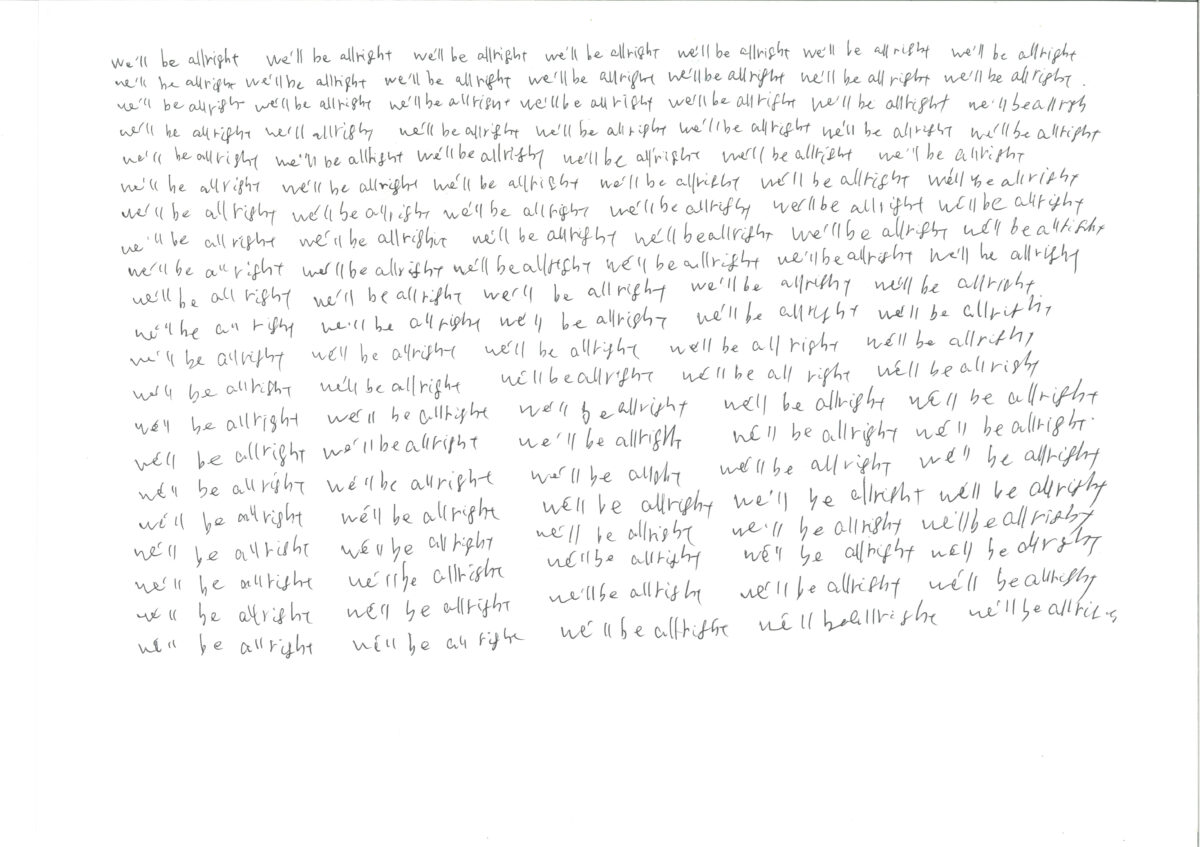 we'll be allright we'll be allright we'll be allright we'll be allright we'll be allright we'll be allright we'll be allright
we'll be allright we'll be allright we'll be allright we'll be allright we'll be allright we'll be allright we'll be allright.
we'll be allright we'll be allright we'll be allright we'll be allright we'll be allright we'll be allright we'll be allrigh
we'll be allright we'll allright we'll be allright we'll be allright we'll be allright we'll be allright we'll be allright
we'll be allright we'll be allright we'll be allright we'll be allright we'll be allright we'll be allright
we'll be allright we'll be allright we'll be allright we'll be allright we'll be allright we'll be allright
we'll be allright we'll be allright we'll be allright we'll be allright we'll be allright we'll be allright
we'll be allright we'll be allright we'll be allright we'll be allright we'll be allright we'll be allright
we'll be allright we'll be allright we'll be allright we'll be allright we'll be allright we'll be allright
we'll be all right we'll be allright we'll be allright we'll be allright we'll be allright
we'll be all right we'll be allright we'll be allright we'll be allright we'll be allright
we'll be allright we'll be allright we'll be allright we'll be all right we'll be allright
we'll be allright we'll be allright we'll be allright we'll be all right we'll be allright
we'll be allright we'll be allright we'll be allright we'll be allright we'll be allright
we'll be allright we'll be allright we'll be allright we'll be allright we'll be allright.
we'll be allright we'll be allright we'll be we'll be allright we'll be allright
we'll be allright we'll be allright we'll be allright we'll be allright we'll be allright
we'll be allright we'll be allright we'll be allright we'll be allright we'll be allright
we'll be allright we'll be allright we'll be allright we'll be allright we'll be
we'll be allright we'll be allright we'll be allright we'll be allright we'll be allright
we'll be allright we'll be all right we'll be allright we'll be allright we'll be